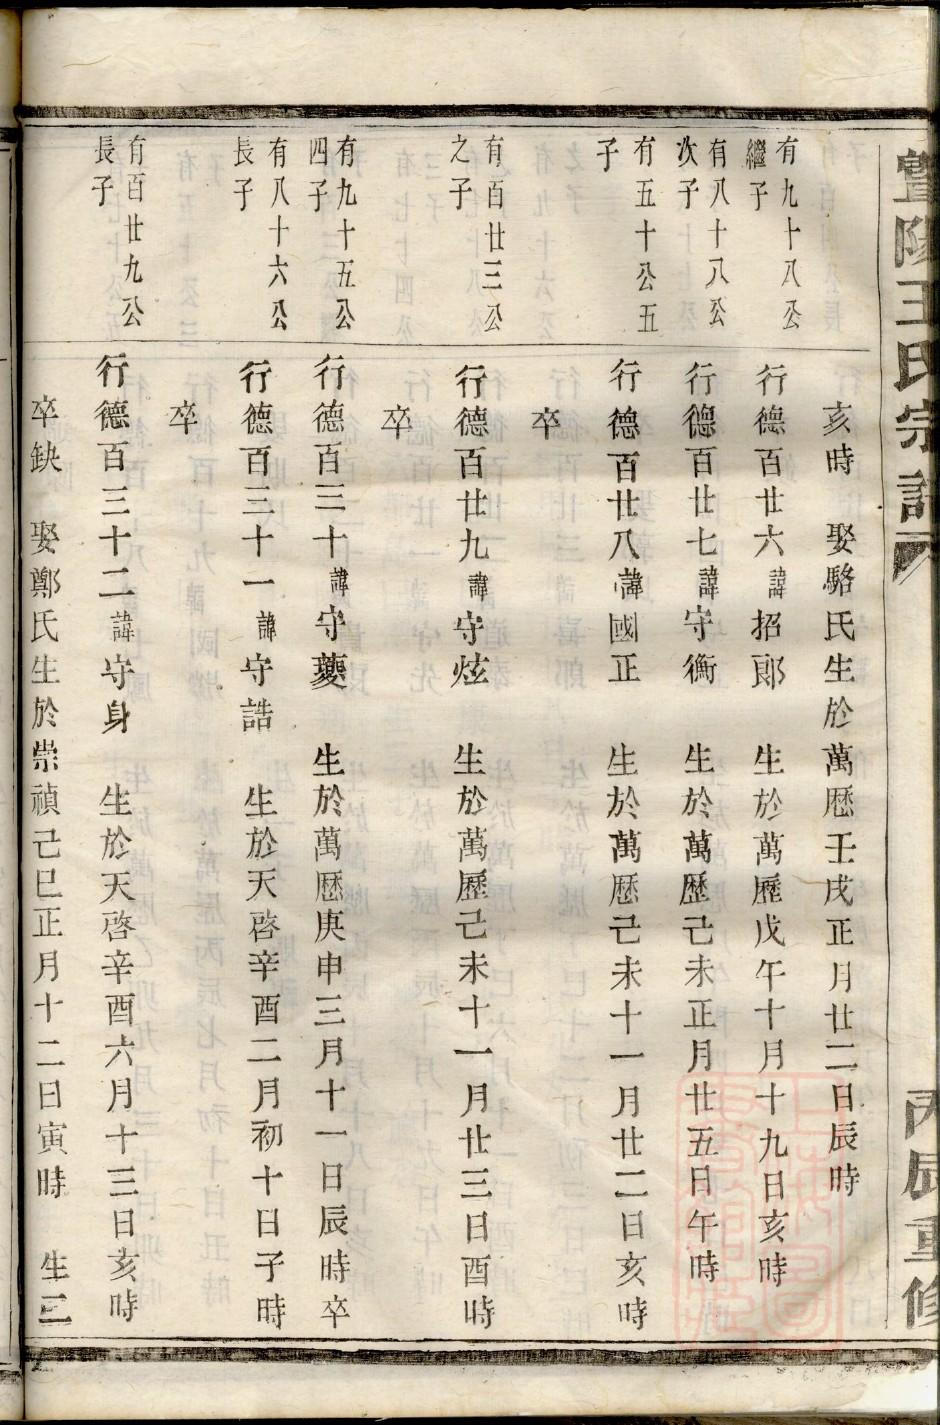 暨陽王氏宗譜
丙辰重修
亥時　娶駱氏生於萬歷壬戌正月廿二日辰時
有九十八公
繼子
行德百廿六諱招郎　生於萬歷戊午十月十九日亥時
有八十八公
次子
行德百廿七諱守衡　生於萬歷己未正月廿五日午時
有五十公五
子
行德百廿八諱國正　生於萬歷己未十一月廿二日亥時
卒
有百廿三公
之子
行德百廿九諱守炫　生於萬歷己未十一月廿三日酉時
卒
有九十五公
四子
行德百三十諱守夔　生於萬歷庚申三月十一日辰時卒
有八十六公
長子
行德百三十一諱守誥　生於天啓辛酉二月初十日子時
卒
有百廿九公
長子
行德百三十二諱守身　生於天啓辛酉六月十三日亥時
卒缺　娶鄭氏生於崇禎己巳正月十二日寅時　生三